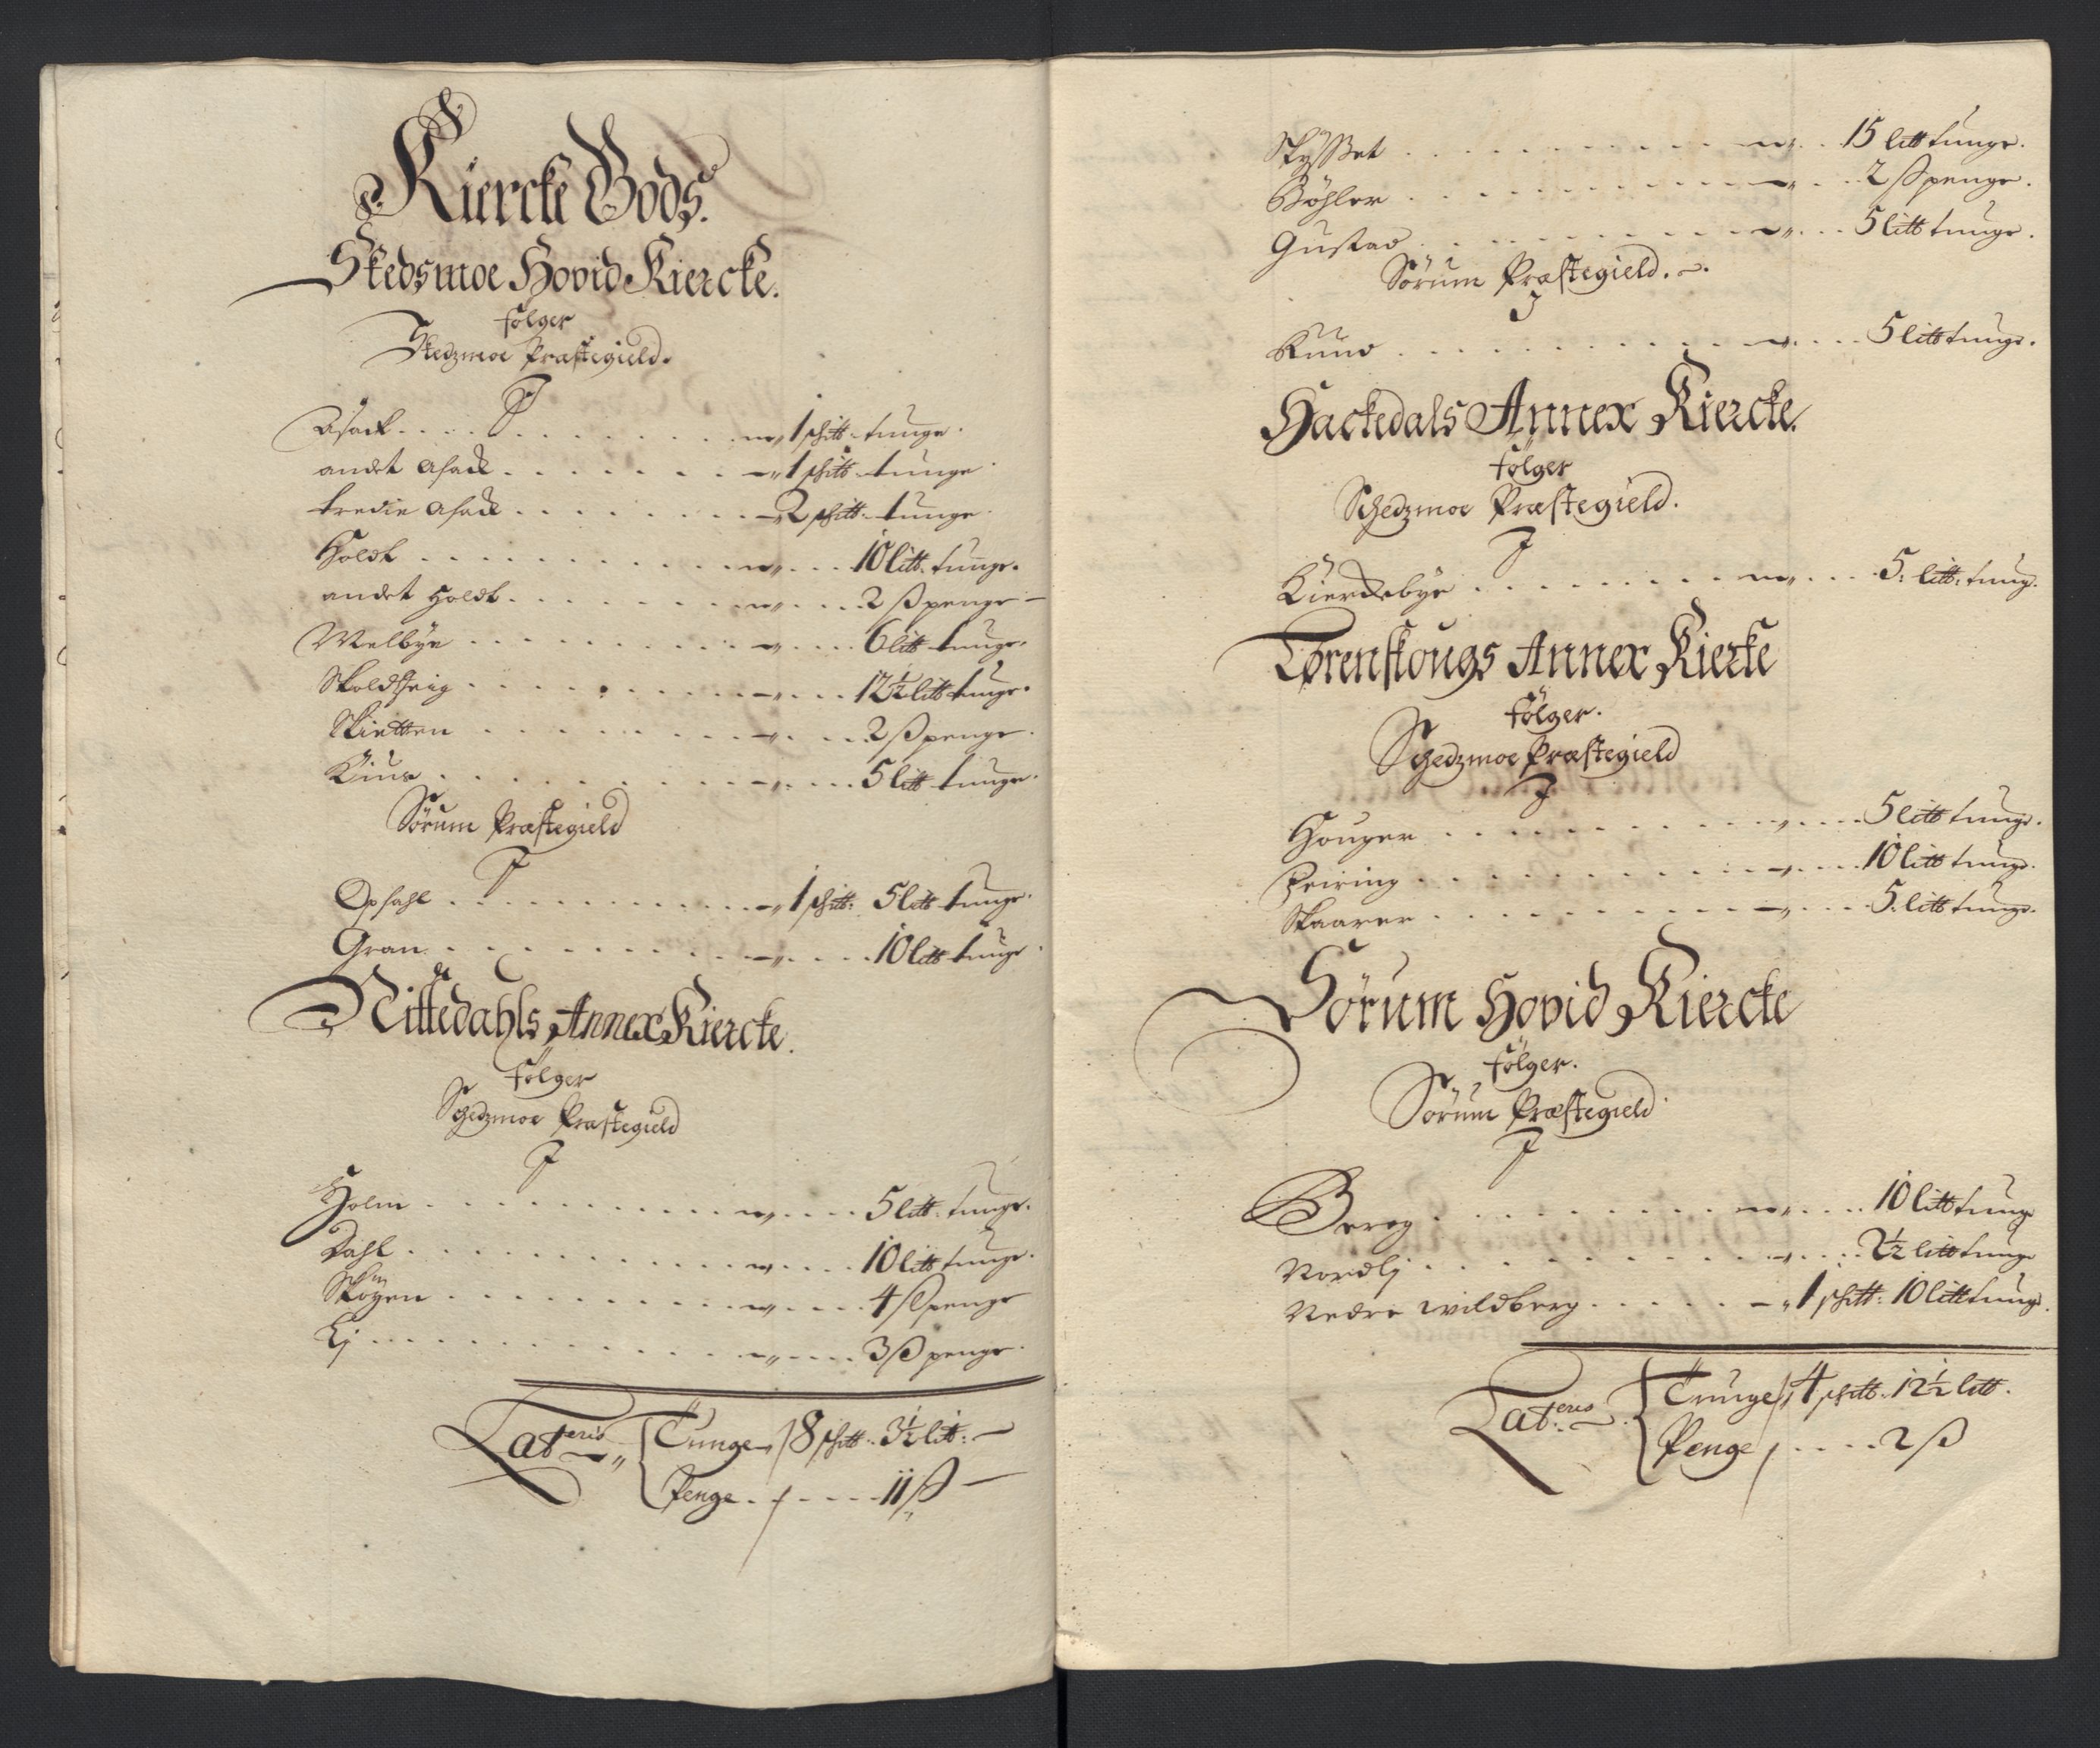 Kiercke Gods.
Skedsmoe Hovid Kiercke.
følger
Skedzmoe Præstegield.
J
Asack . . . . 1 skltb: tunge.
andet Asack . . . . 1 skltb: tunge
tredie Asack . . . . 2 skltb: tunge.
Holdt . . . . 10 litb: tunge.
andet Holdt . . . . 2 ß penge –
Melbye . . . . 6 litb tunge.
Skoldheig . . . . 12½ litb tunge.
Skietten . . . . 2 ß penge.
Kiuus . . . . 5 litb tunge.
Sørum Præstegield
J
Opsahl . . . . 1 skltb: 5 litb tunge.
Gran . . . . 10 litb tunge.
Nittedahls Annex Kiercke.
følger
Schedzmoe Præstegield
J
Holm . . . . 5 litb: tunge.
Dahl . . . . 10 litb tunge.
Skøyen . . . . 4 ß penge
Lj . . . . 3 ß penge.
Lateris „ { Tunge, 8 skltb: 3½ litb: –
Penge . . . . 11 ß –
Skysset . . . . 15 litb tunge.
Bøhler . . . . 2 ß penge.
Gustad . . . . 5 litb tunge.
Sørum Præstegield.
J
Ruud . . . . 5 litb tunge.
Hackedals Annex Kiercke.
følger
Schedzmoe Præstegield.
J
Kierckebye . . . . 5: litb: tung.
Lørenskougs Annex Kiercke
følger.
Schedzmoe Præstegield
J
Houger . . . . 5 litb tunge.
Feiring . . . . 10 litb tunge.
Skaarer . . . . 5: litb tunge.
Sørum Hovid Kiercke
følger.
Sørum Præstegield.
J
Berog . . . . 10 litb tunge
Nordlj . . . . 2½ litb tunge
Nedre Wildberg . . . . 1 skltb: 10 litb tunge.
Lateris { Tunge, 4 skltb: 12½ litb.
Penge, . . . . 2 ß